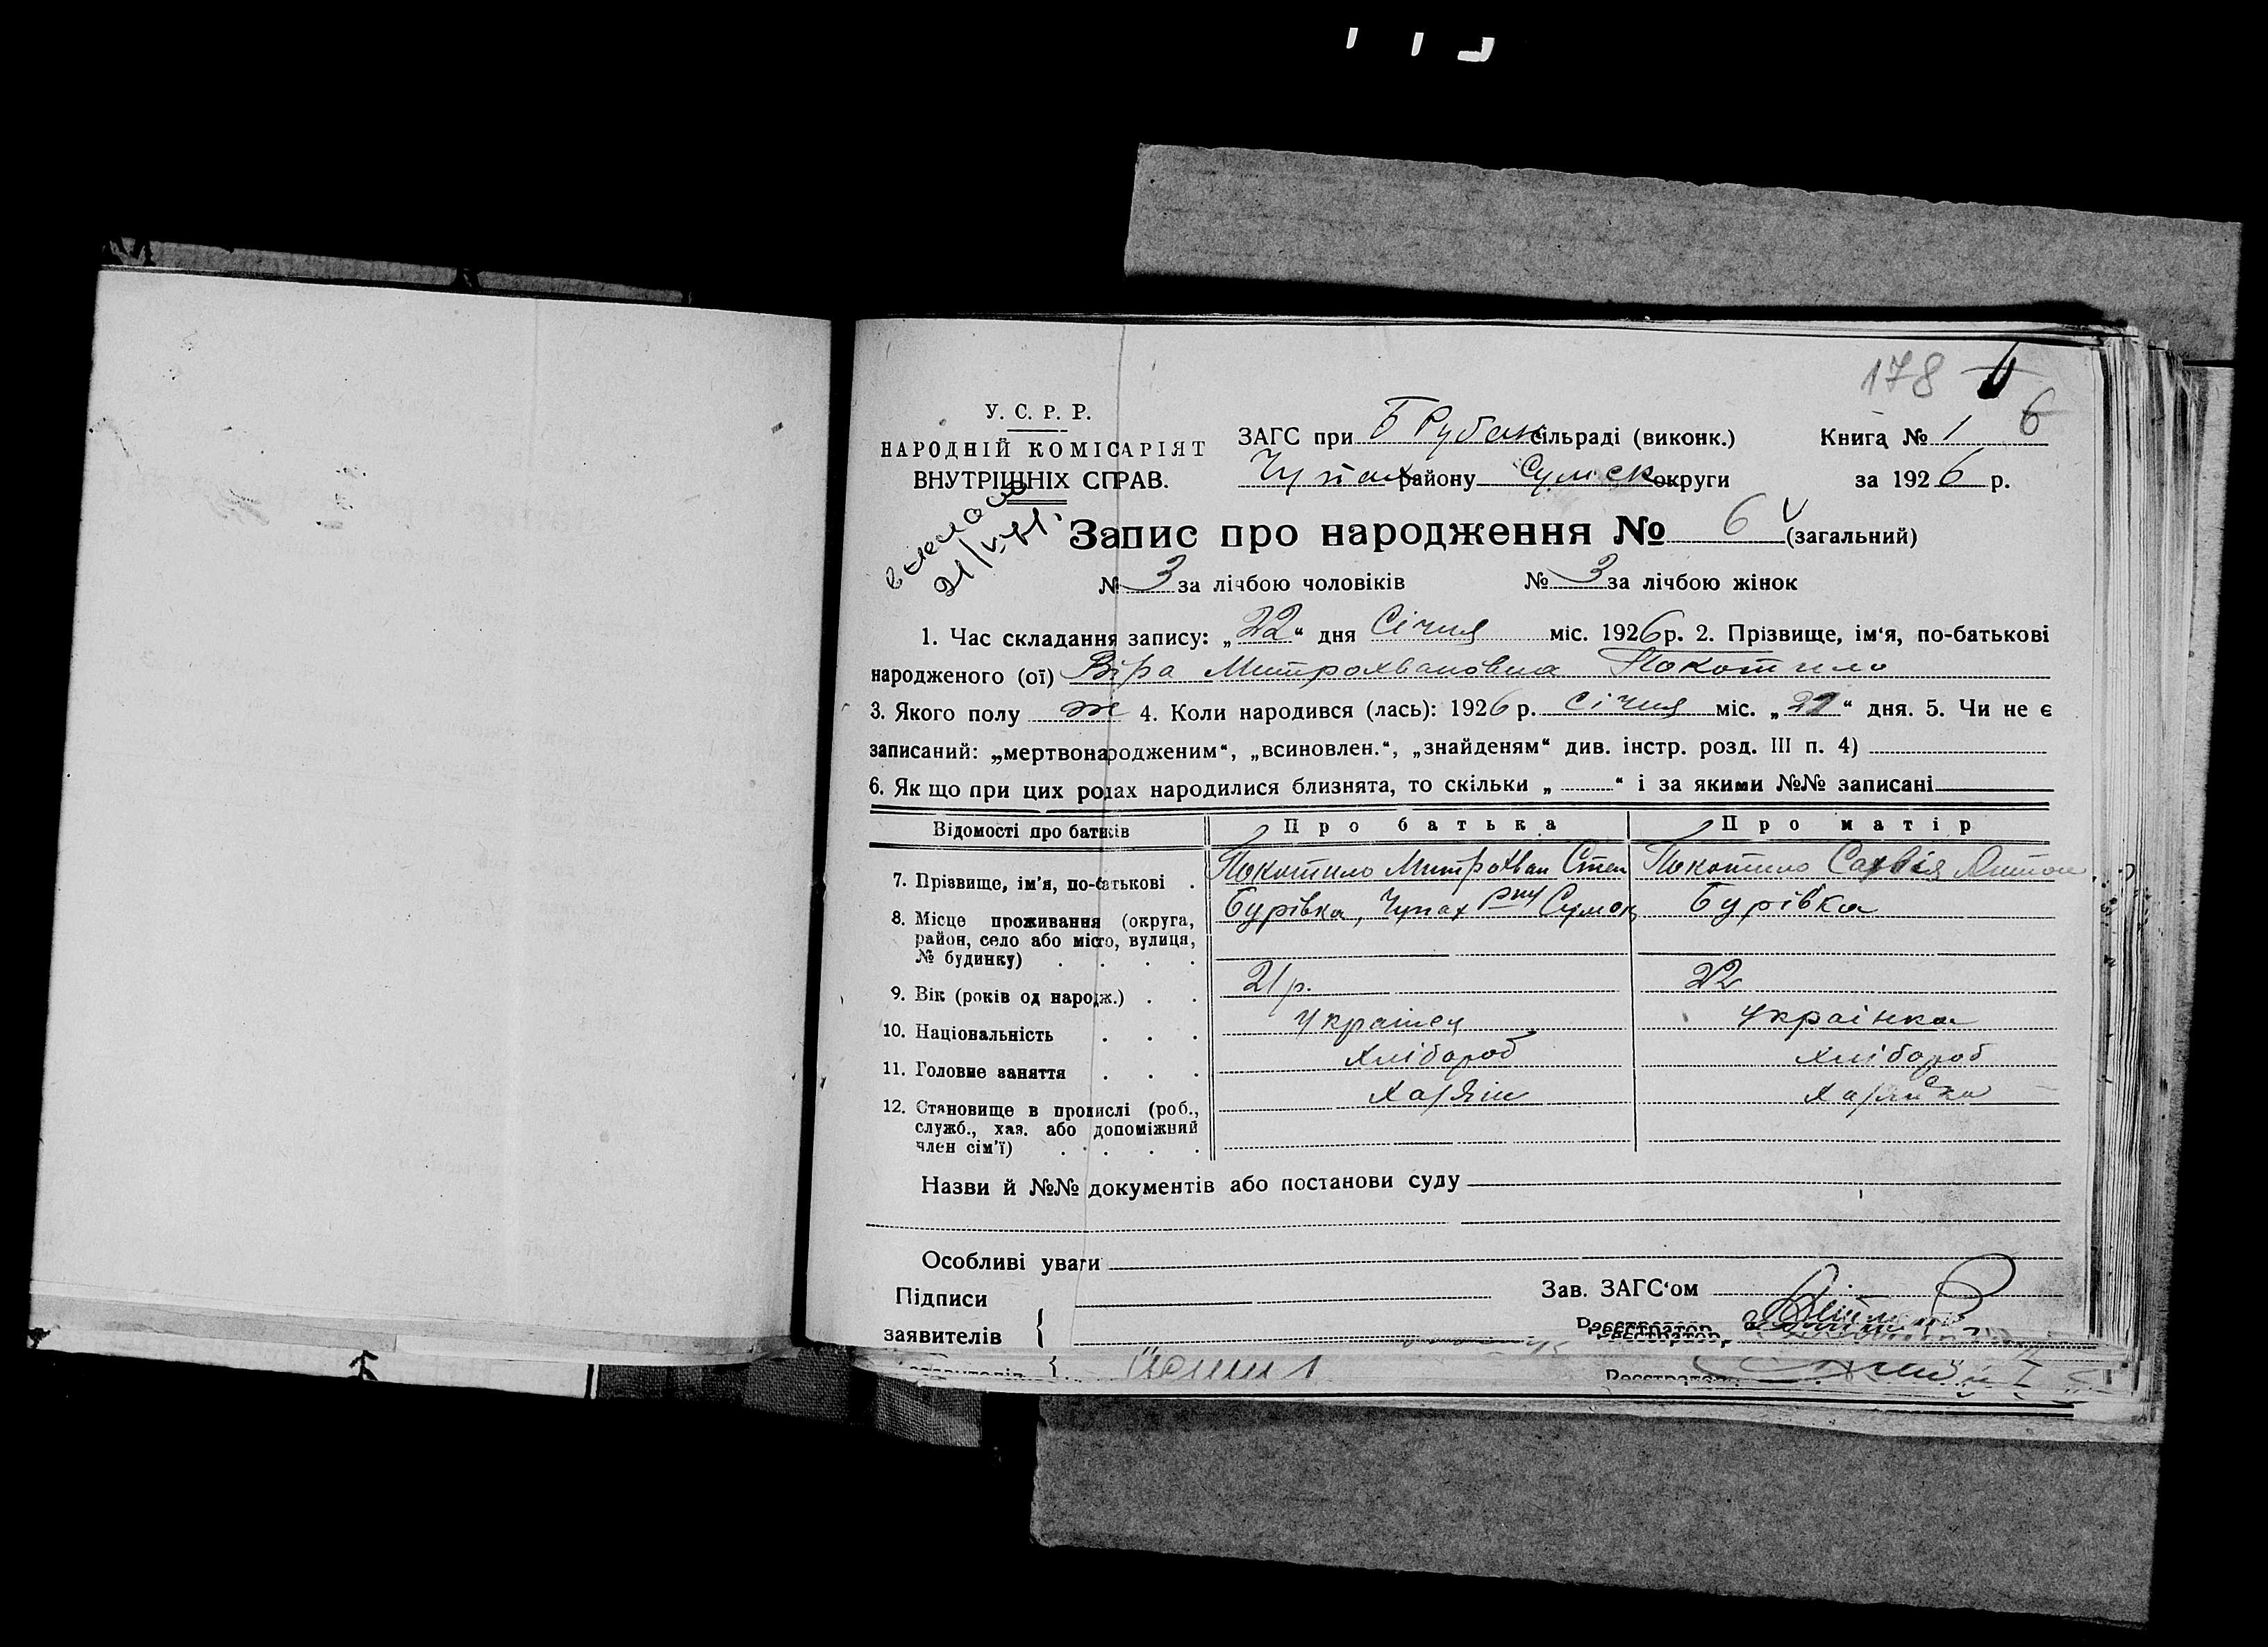 178
6
У. С. Р. Р.
НАРОДНІЙ КОМІСАРІЯТ
ВНУТРІШНІХ СПРАВ.
ЗАГС при Б Рубан сільраді (виконк.) Книга № 1
Чупах району Сумск округи за 1926 р.
21/
Запис про народження № 6 (загальний)
№ 3 за лічбою чоловіків № 3 за лічбою жінок
1. Час складання запису: „22“ дня Січня міс. 1926 р. 2. Прізвище, ім‘я, по-батькові
народженого (ої) Віра Митрохвановна Покотило
3. Якого полу ж 4. Коли народився (лась): 1926 р. Січня міс. „21“ дня. 5. Чи не є
записаний: „мертвонародженим“, „всиновлен.“, „знайденям“ див. інстр. розд. III п. 4)
6. Як що при цих родах народилися близнята, то скільки „ “ і за якими №№ записані
Відомості про батьків Про батька Про матір
7. Прізвище, ім'я, по-батькові . Покотило Митрохван Степ Покотило Сахвія Антон
8. Місце проживання (округа, район, село або місто, вулиця, № будинку) . . . . Бурівка, Чупах рну Сумск Бурівка
9. Вік (років од народж.) . . 21 р. 22
10. Національність . . . Українец українка
11. Головне заняття . . . Хлібороб хлібороб
12. Становище в промислі (роб., служб., хаз. або допоміжний член сім'ї) . . . . . Хазяін Хазяйка
Назви й №№ документів або постанови суду
Особливі уваги
Підписи
заявителів {
Зав. ЗАГС‘ом
Реєстратор
Реєстратор